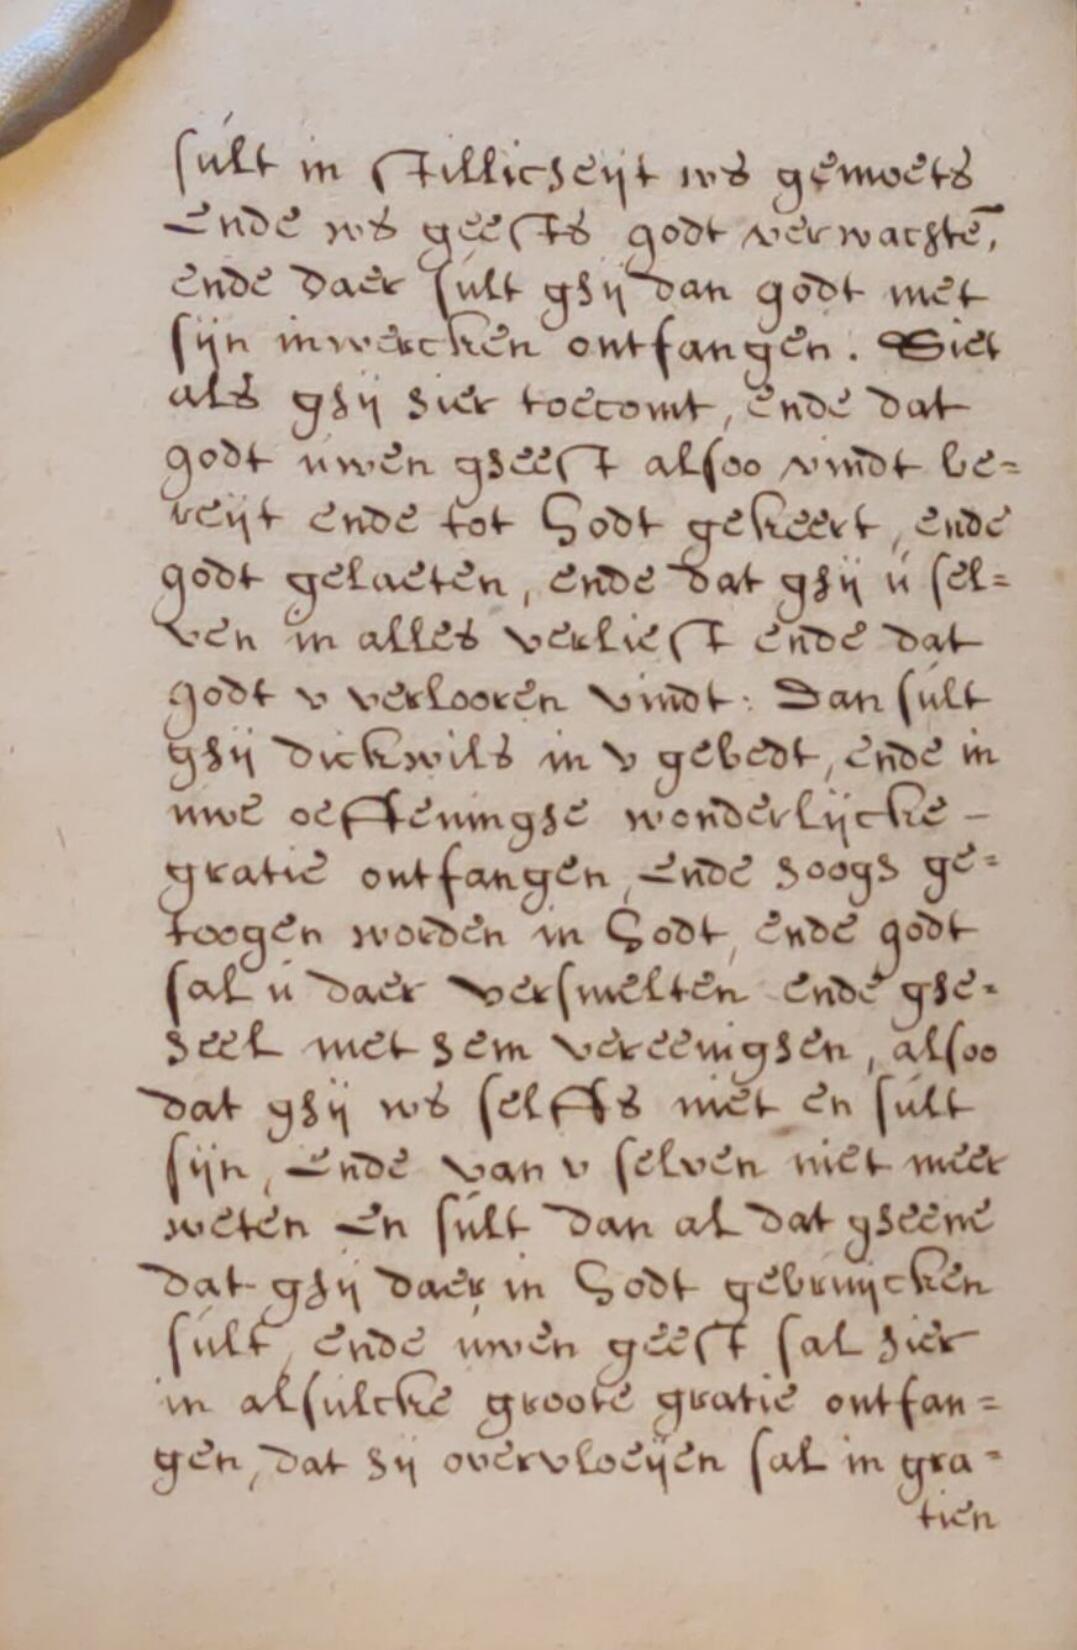 sult in stillicheijt ws gemoets
Ende ws geests godt verwachtē,
ende daer sult ghij dan godt met
sijn inwercken ontfangen. Siet
als ghij hier toecomt, ende dat
godt uwen gheest alsoo vindt be=
reijt ende tot Godt gekeert, ende
godt gelaeten, ende dat ghij u sel=
ven in alles verliest ende dat
godt v verlooren vindt: Dan sult
ghij dickwils in v gebedt, ende in
uwe oeffeninghe wonderlijcke –
gratie ontfangen, Ende hoogh ge=
toogen worden in Godt, ende godt
sal u daer versmelten ende ghe=
heel met hem vereenighen, alsoo
dat ghij ws selffs niet en sult
sijn, Ende van v selven niet meer
weten En sult dan al dat gheene
dat ghij daer in Godt gebruijcken
sult, ende uwen geest sal hier
in alsulcke groote gratie ontfan=
gen, dat hij overvloeijen sal in gra=
tien